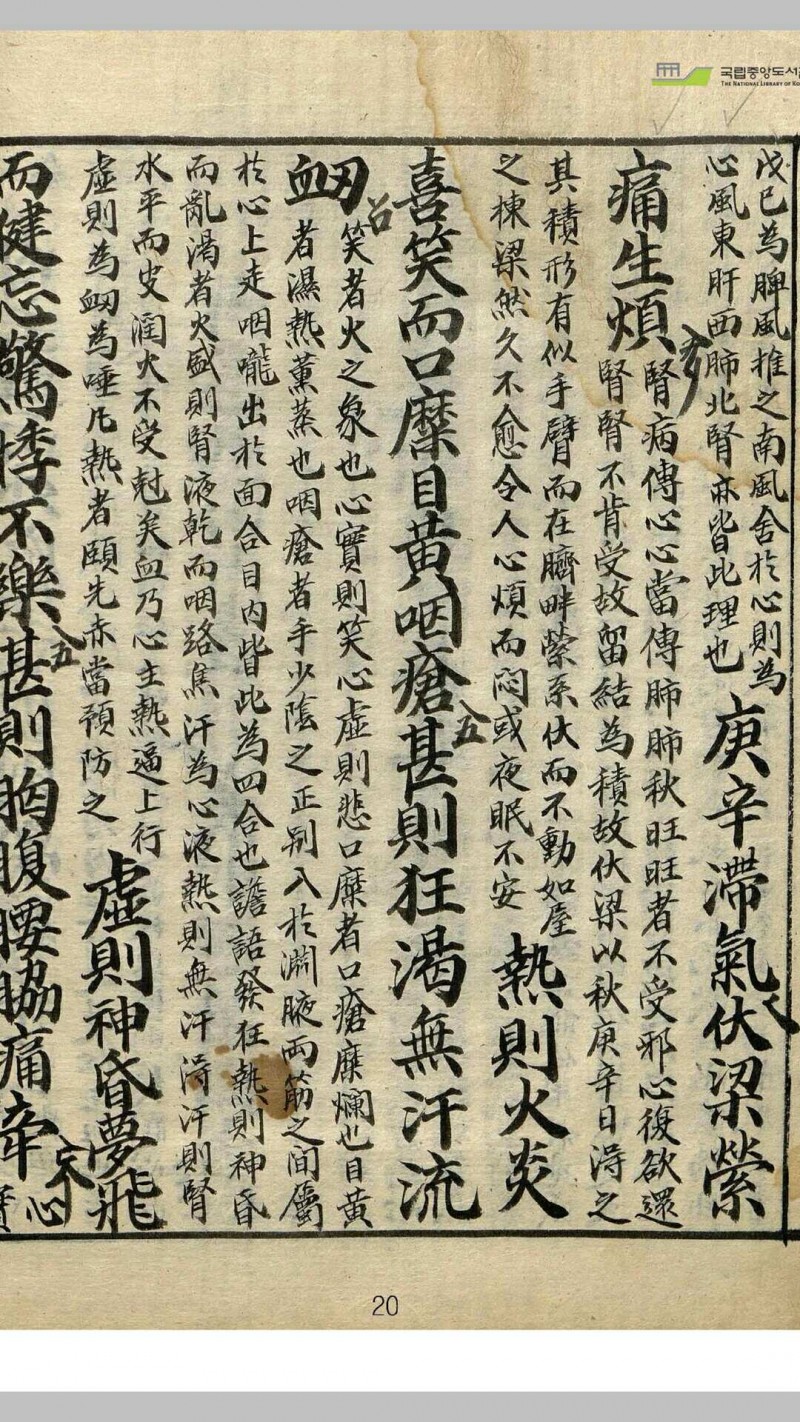 국립중앙도서관
THE NATIONAL LIBRARY OF KO
戊巳為脾風推之南風舍於心則為
心風東肝西肺北腎亦皆此理也
庚辛滯氣伏梁縈
痛生煩
腎病傳心心當傳肺肺秋旺旺者不受邪心復欲還
腎腎不肯受故留結為積故伏梁以秋庚辛日得之
其積形有似手臂而在臍畔縈系伏而不動如屋
之棟梁然久不愈令人心煩而悶或夜眠不安
熱則火炎
喜笑而口糜目黃咽瘡甚則狂渴無汗流
衂血
笑者火之象也心實則笑心虛則悲口糜者口瘡糜爛也目黃
者濕熱薰蒸也咽瘡者手少陰之正別入於淵腋兩筋之間屬
於心上走咽嚨出於面合目內皆此為四合也譫語發狂熱則神昏
而亂渴者火盛則腎液乾而咽路焦汗為心液熱則無汗得汗則腎
水平而皮潤火不受尅矣血乃心主熱逼上行
虛則為衂為唾凡熱者頤先赤當預防之
虛則神昏夢飛
而健忘驚悸不樂甚則胸腹腰脇痛牽
心
20